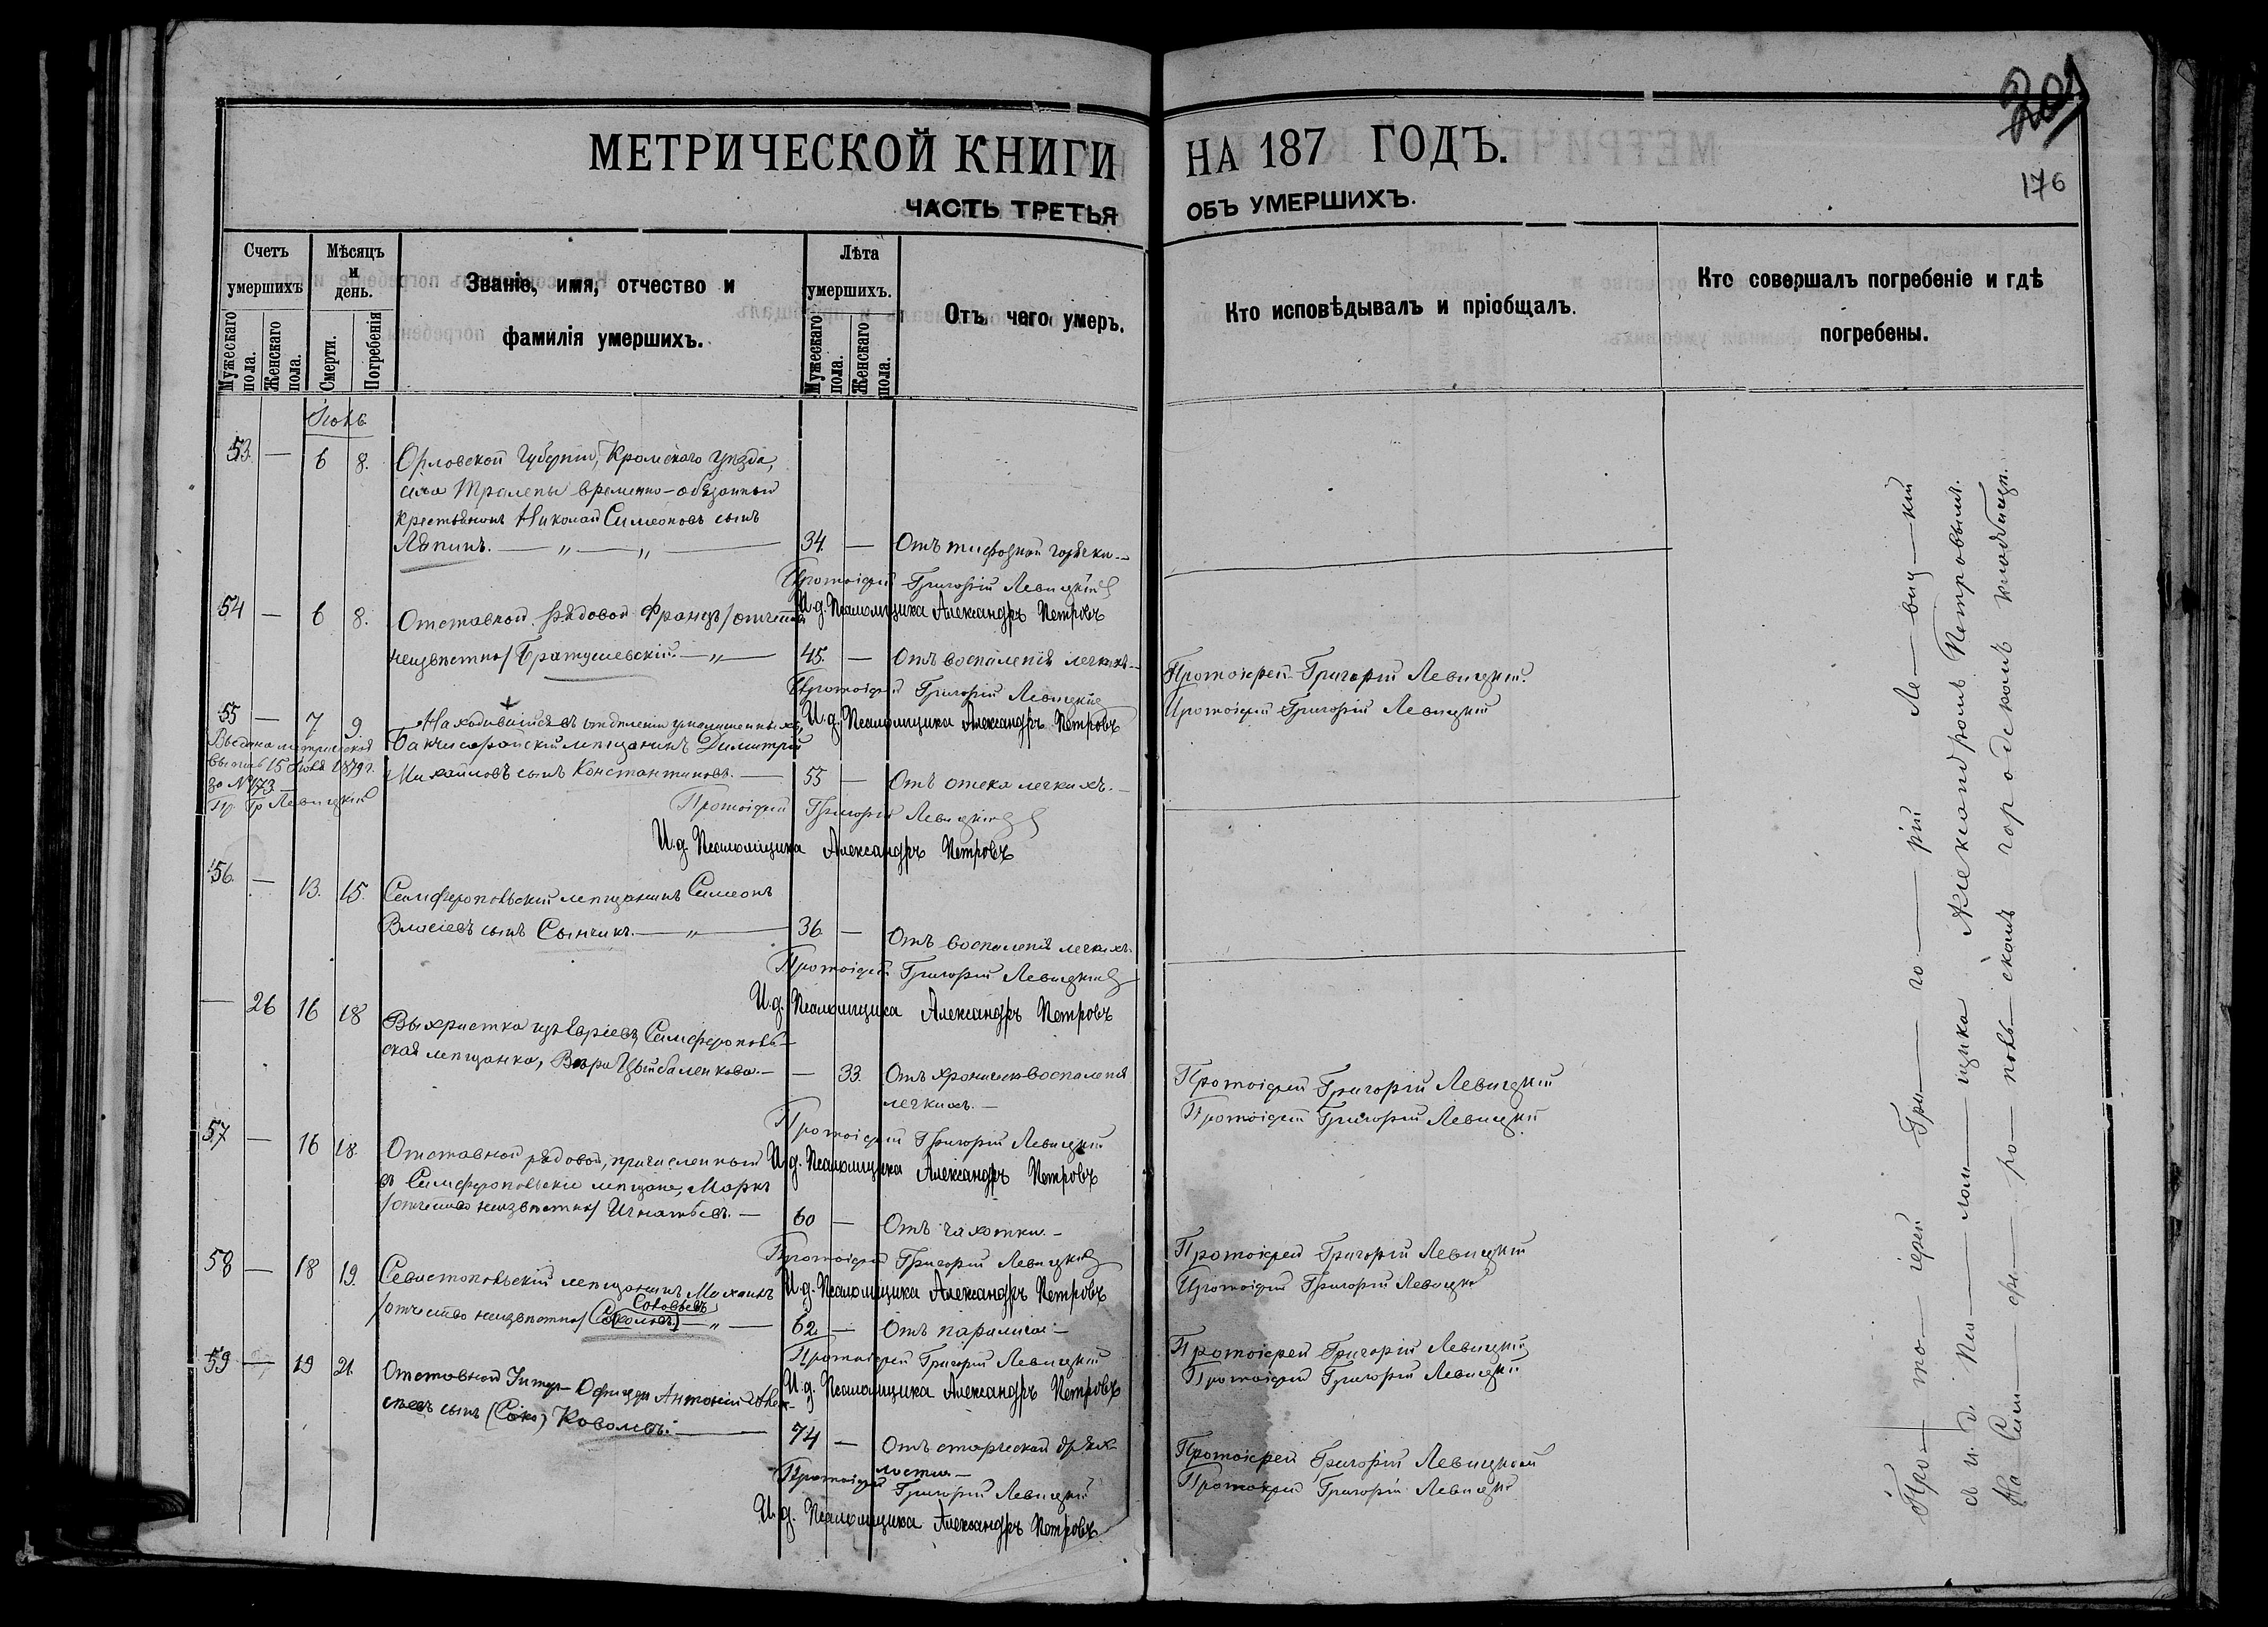 МЕТРИЧЕСКОЙ КНИГИ НА 187 ГОДЪ.
176
ЧАСТЬ ТРЕТЬЯ ОБЪ УМЕРШИХЪ.
Счетъ умершихъ
Мужескаго пола.
Женскаго пола.
Мѣсяцъ и день.
Смерти.
Погребенія
Званіе, имя, отчество и фамилія умершихъ.
Лѣта умершихъ.
Мужескаго пола.
Женскаго пола.
Отъ чего умеръ.
Кто исповѣдывалъ и пріобщалъ.
Кто совершалъ погребеніе и гдѣ погребены.
53. — 6 8. Орловской Губерніи, Кромскаго уѣзда,
села временно-обязанный
крестьянинъ Николай Симеоновъ сынъ
Лапинъ. — „ — „ — 34. — Отъ тифозной горячки. —
Протоіерей Григорій Левицкій
И.д. Псаломщика Александръ Петровъ
54 — 6 8. Отставной рядовой Францъ /отчество
неизвѣстно/ Братушевскій. — „ — 45. — Отъ воспаленія легкихъ —
Протоіерей Григорій Левицкій.
Протоіерей Григорій Левицкій
И.д. Псаломщика Александръ Петровъ
Протоіерей Григорій Левицкій
55 — 7 9. Находившійся въ отдѣленіи умалишенныхъ,
Бакчисарайскій мѣщанинъ Димитрій
Михайловъ сынъ Константиновъ. — 55 — Отъ отека легкихъ. —
Выдана метрическая
выпись 15 Іюня 1879 г.
за № 173 —
Пр. Гр Левицкій
Протоіерей Григорій Левицкій
И.д. Псаломщика Александръ Петровъ
56. — 13. 15. Симферопольскій мѣщанинъ Симеонъ
Власіевъ сынъ Сынчикъ. — „ — 36 — Отъ воспаленія легкихъ.
Протоіерей Григорій Левицкій
И.д. Псаломщика Александръ Петровъ
— 26 16 18 Выхристка изъ Евреевъ, Симферополь-
ская мѣщанка, Вѣра Цымбаленкова. — — 33. Отъ хроническ. воспаленія
легкихъ. —
Протоіерей Григорій Левицкій
Протоіерей Григорій Левицкій
Протоіерей Григорій Левицкій
И.д. Псаломщика Александръ Петровъ
57 — 16 18. Отставной рядовой, причисленный
въ Симферопольскіе мѣщане, Маркъ
/отчество неизвѣстно/ Игнатьевъ. — 60 — Отъ чахотки. —
Протоіерей Григорій Левицкій
Протоіерей Григорій Левицкій
Протоіерей Григорій Левицкій
И.д. Псаломщика Александръ Петровъ
58 — 18 19. Севастопольскій мѣщанинъ Михаилъ
Соловьевъ
/отчество неизвѣстно/ — „ — 62 — Отъ паралича —
Протоіерей Григорій Левицкій
Протоіерей Григорій Левицкій
Протоіерей Григорій Левицкій
И.д. Псаломщика Александръ Петровъ
59 — 19 21. Отставной Унтеръ-Офицеръ Антоній
сынъ (Соко) Ковалевъ. — 74 — Отъ старческой дрях-
лости —
Протоіерей Григорій Левицкій
Протоіерей Григорій Левицкій
Протоіерей Григорій Левицкій
И.д. Псаломщика Александръ Петровъ
Про — то — іерей Гри — го — рій Ле — виц — кій
съ и. д. Пса — лом — щика Александромъ Петровымъ.
На Сим — фе — ро — поль — скомъ городскомъ кладбищѣ.